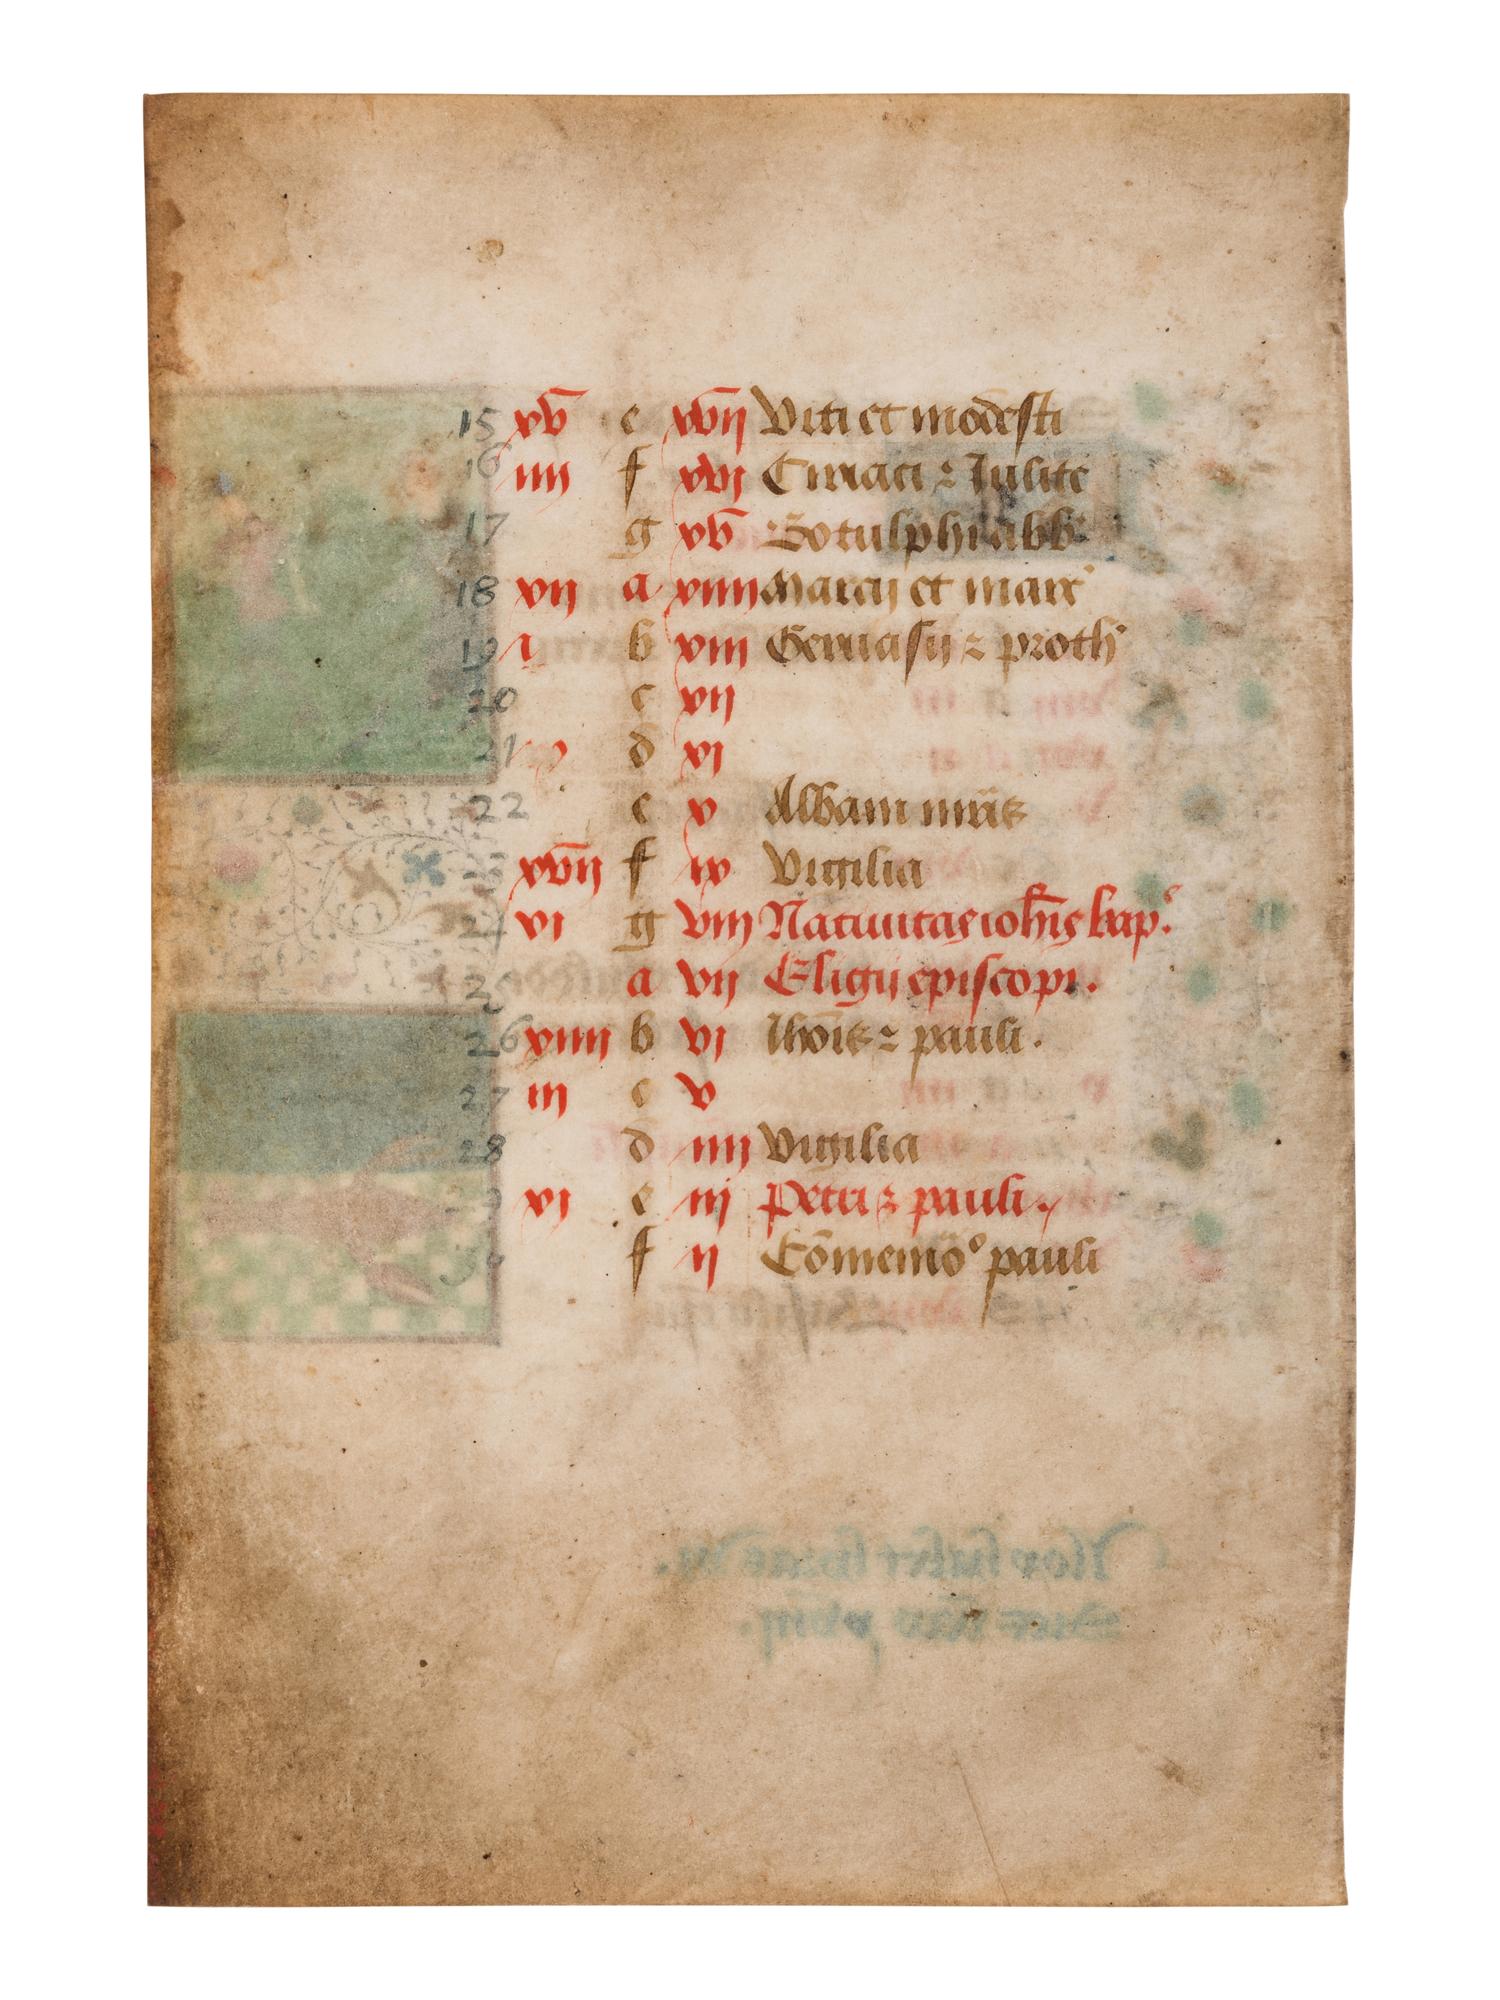 15 xv e xvij Viti et modesti
16 iiij f xvj Ciriaci ⁊ Julite
17 g xv Botulphi abb'
18 xij a xiiij Marcij et marc'
19 j b xiij Geruasij ⁊ proth'
20 c xij
21 d xj
22 e x Albani mr̄is
23 xvij f ix Vigilia
24 vj g viij Natiuitas ioh̄is bap.
25 a vij Eligij episcopi.
26 xiiij b vj Ioh̄is ⁊ pauli.
27 iij c v
28 d iiij Vigilia
29 xj e iij Petri ⁊ pauli.
30 f ij Cōmemo° pauli